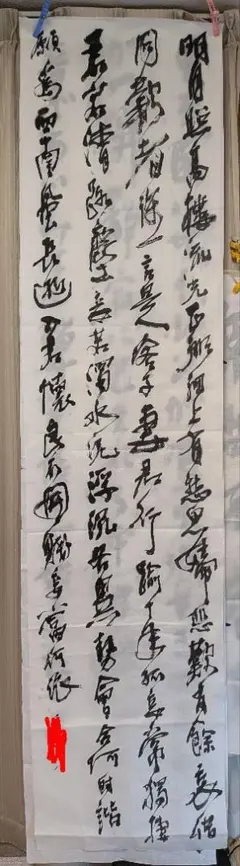 明月照高樓流光正徘徊上有愁思婦悲歎有餘哀借
問歎者誰言是客子妻君行踰十年孤妾常獨棲
君若清路塵妾若濁水泥浮沉各異勢會合何時諧
願為西南風長逝入君懷良不開賤妾當何依